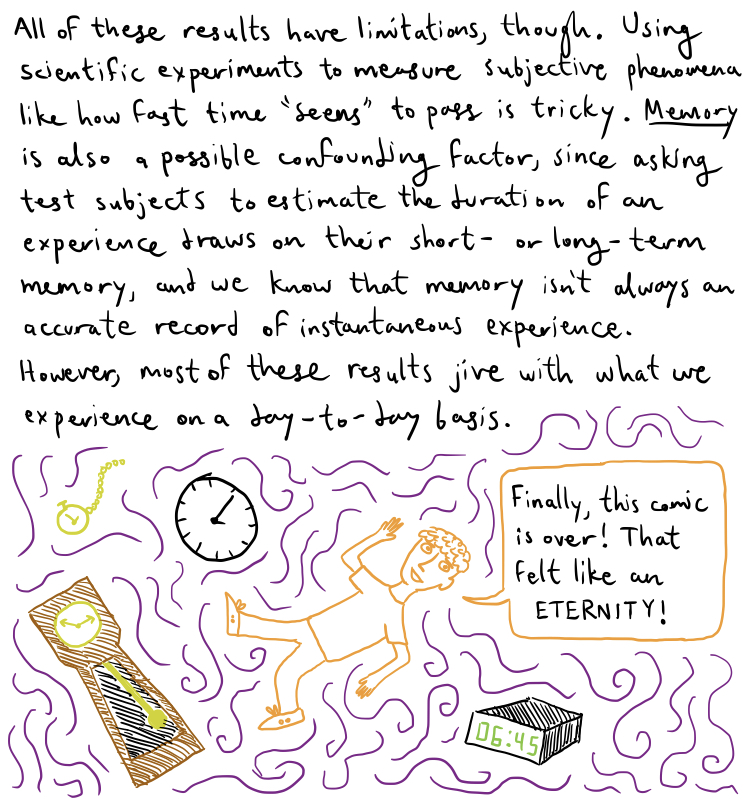 All of these results have limitations, though. Using
scientific experiments to measure subjective phenomena
like how fast time "seems" to pass is tricky. Memory
is also a possible confounding factor, since asking
test subjects to estimate the duration of an
experience draws on their short- or long-term
memory, and we know that memory isn't always an
accurate record of instantaneous experience.
However, most of these results jive with what we
experience on a day-to-day basis.
Finally, this comic
is over! That
felt like an
ETERNITY!
06:45